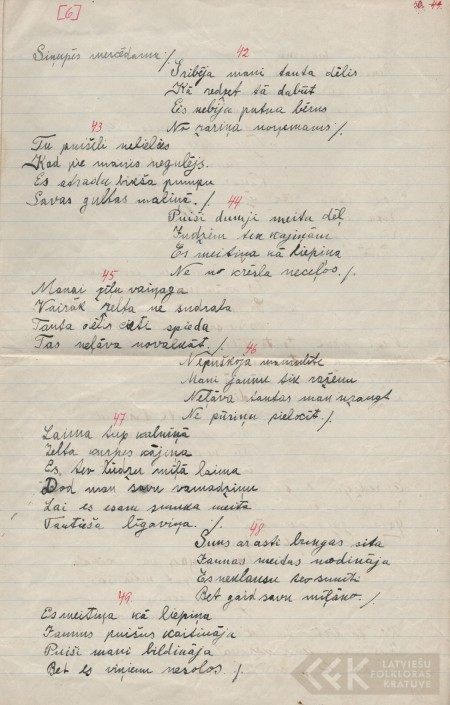 [6]
50. 44.
Siņupēs mercēdama:/.
42
Gribēja mani tauta dēlis
Kā redzet tā dabūt
Es nebiju putna bērns
No zariņa noņemams /.
43
Tu puisīti nelielies
Kad pie manis negulējs.
Es atradu bikša pumpu
Savas gultas maliņā. /
44
Puiši dumji meitu dēļ
Judzēm tek kajiņām
Es meitiņa kā liepiņa
Ne no krēsla neceļos. /.
45
Manai zīļu vaiņaga
Vairāk zelta ne sudraba
Tauta dēlis cieti spieda
Tas neļāva novalkāt. /.
46
Nepuškoja mamulīte
Mani jaunu tik važenu
Neļāva tautas man uzaugt
Ne pūriņu pielocīt. /.
47
Laima tup kalniņā
Zelta kurpes kājiņa
Es, tev lūdzu mīļā laima
Dod man savu vainadziņu
Lai es esam smuka meita
Tautieša līgaviņa. /.
48
Suns arasti brugas sita
Jaunas meitas modināja
Es neklausu tev sunīti
Bet gaid savu mīļāko. /.
49.
Es meitiņa kā liepiņa
Jaunus puišus kaitināja
Puiši mani bildināja
Bet es viņiem nesolos. /.
LATVIEŠU
FOLKLORAS
KRĀTUVE